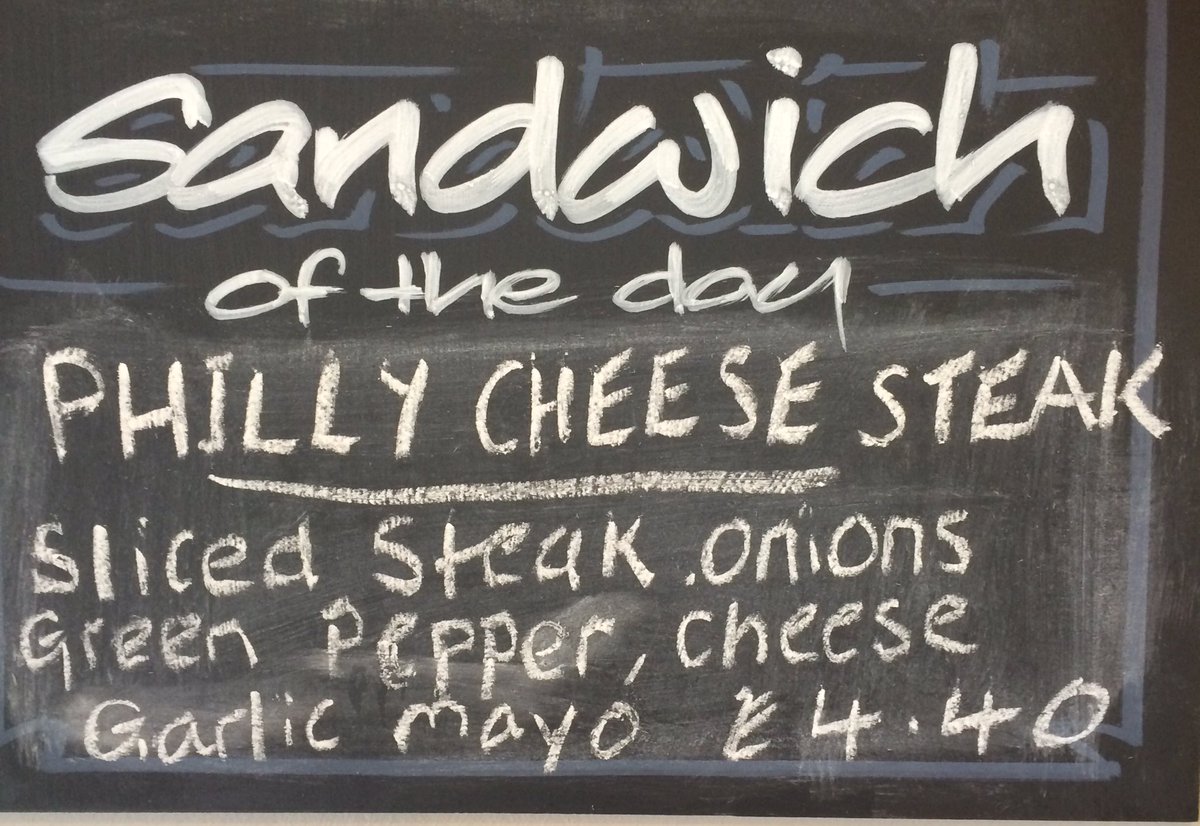 Sandwich
of the day
PHILLY CHEESE STEAK
Sliced Steak .onions
Green Pepper, cheese
Garlic mayo £4.40